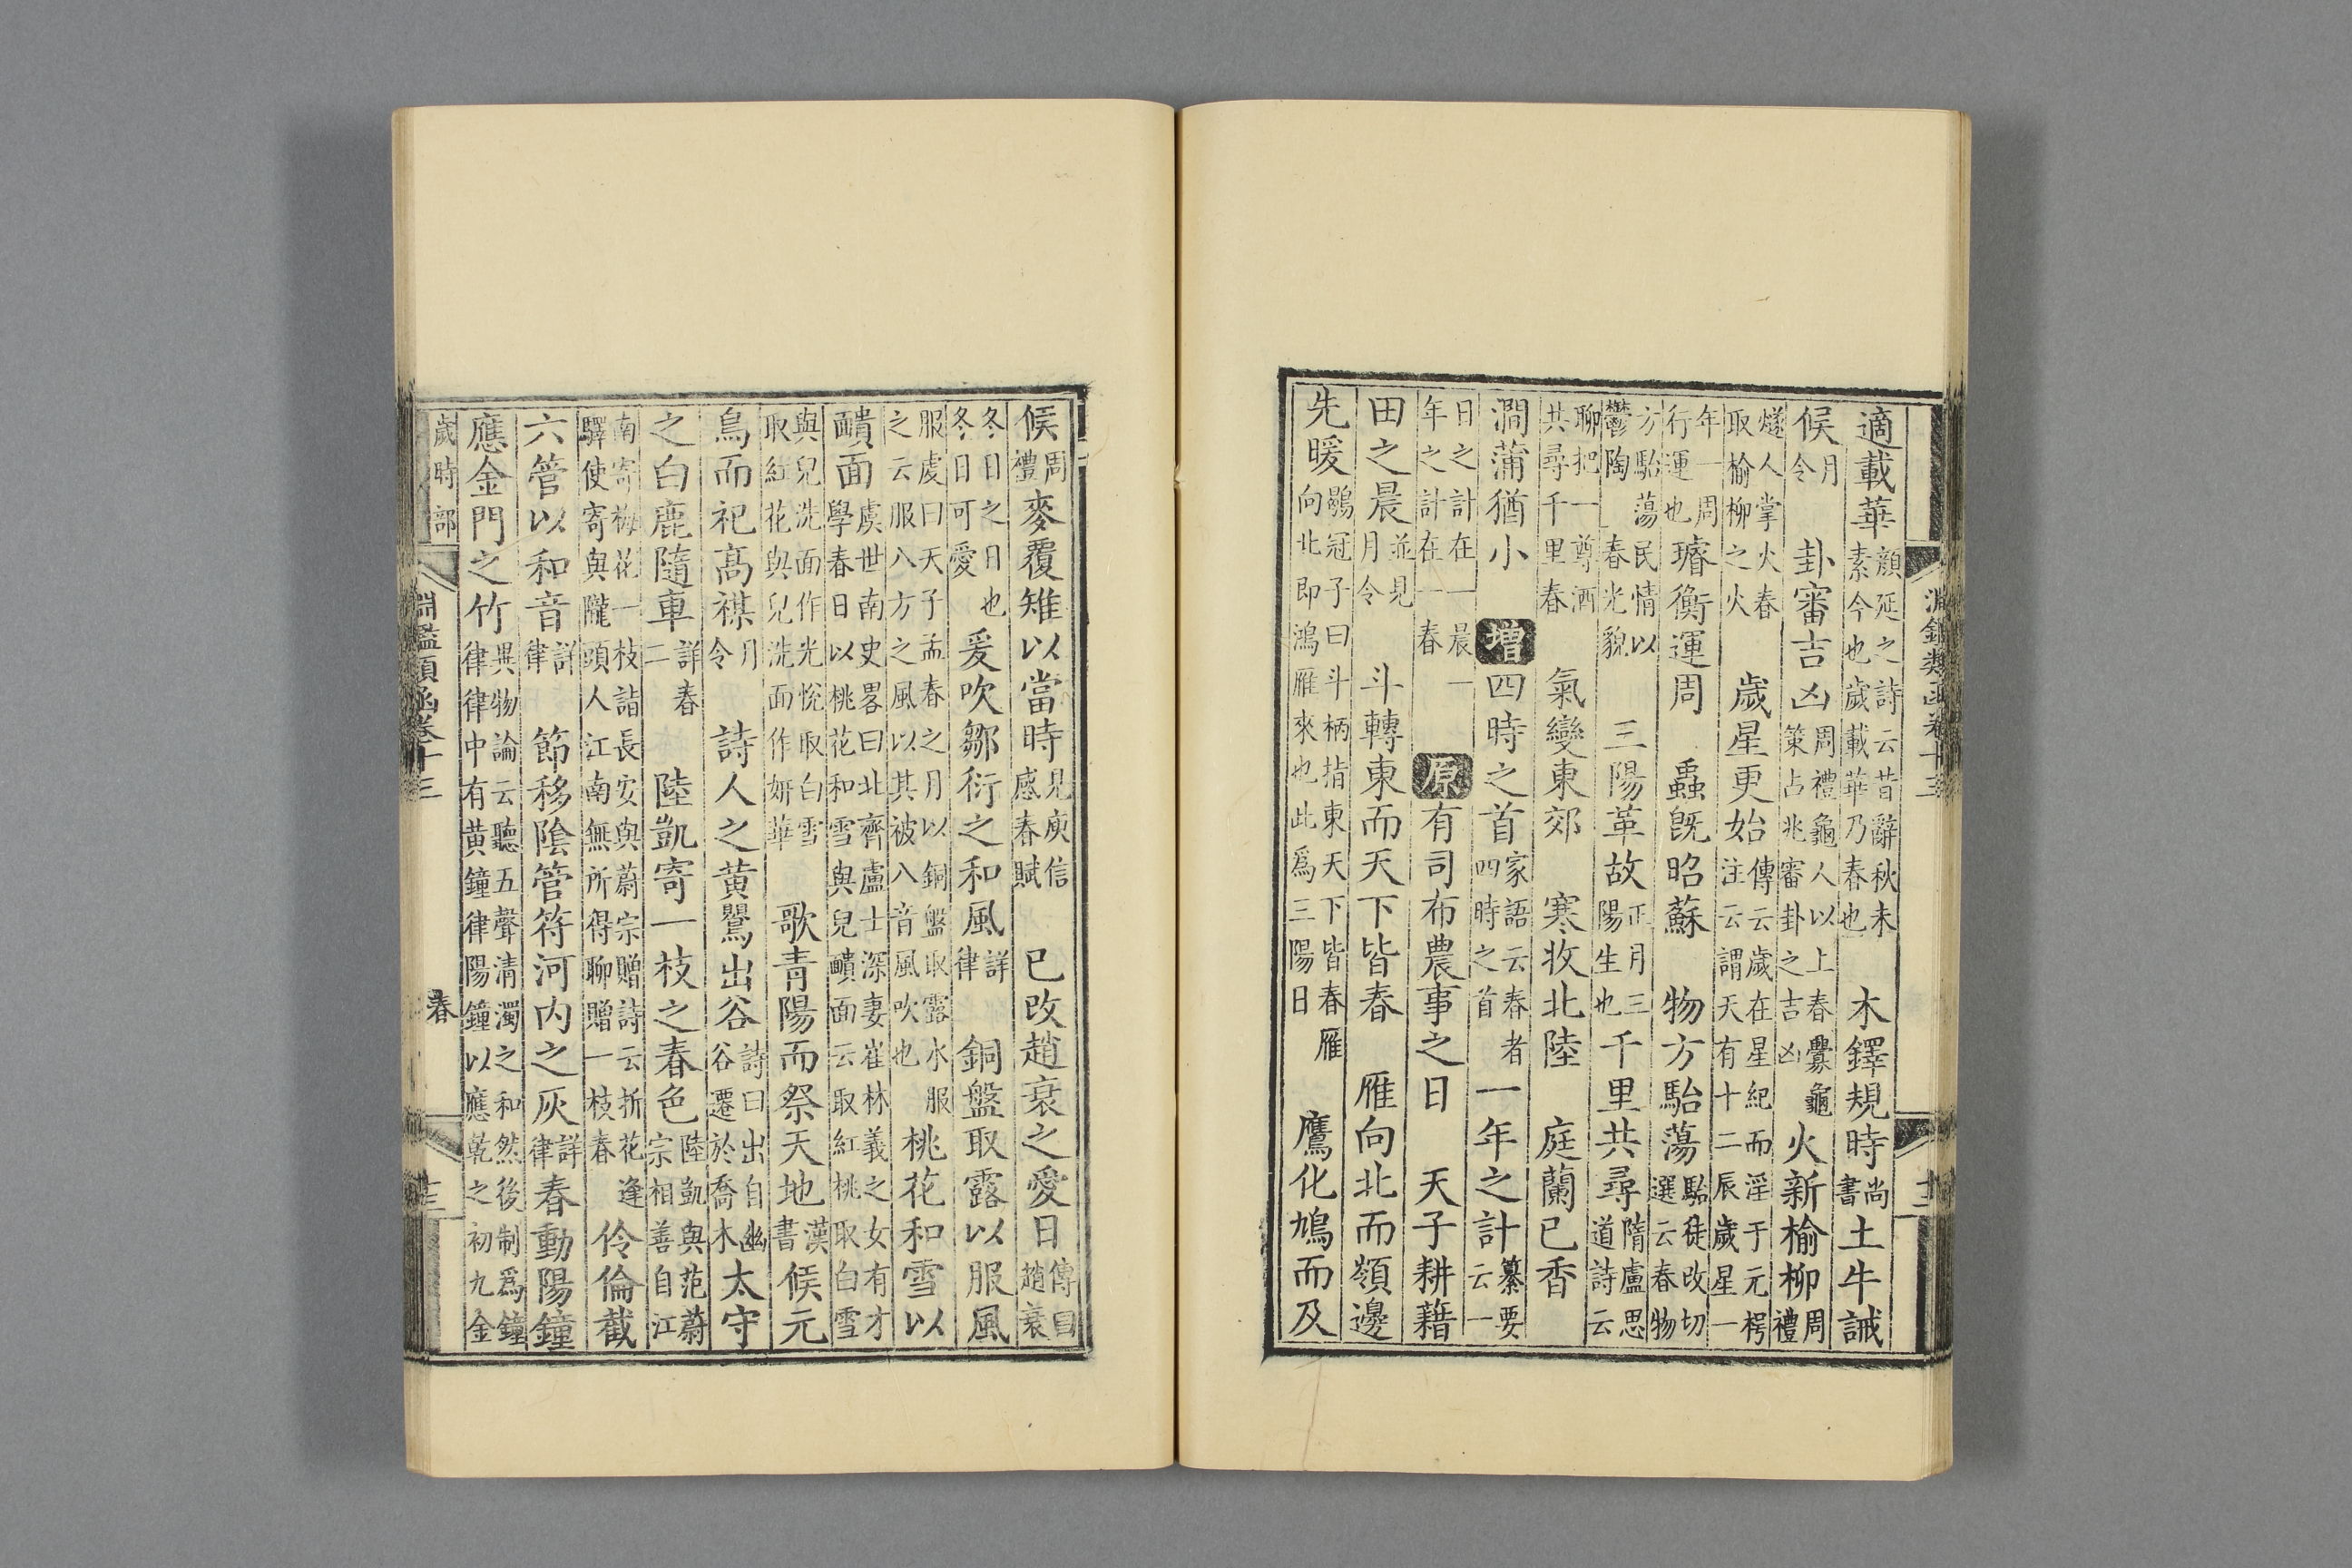 淵鑑類函卷十三
適載華顔延之詩云昔辭秋未素今也歲載華乃春也 木鐸規時尚書土牛誡
候月令 卦審吉凶周禮龜人以上春釁龜策占兆審卦之吉凶 火新榆柳周禮
燧人掌火春取榆柳之火 歲星更始傳云歲在星紀而淫于元枵注云謂天有十二辰歲星一
年一周行運也 璿衡運周 蟲旣昭蘇 物方駘蕩駘徒改切選云春物
方駘蕩民情以鬱陶 春光貌 三陽革故正月三陽生也千里共尋隋盧思道詩云
聊把一尊酒共尋千里春 氣變東郊 寒收北陸 庭蘭已香
澗蒲猶小 增四時之首家語云春者四時之首一年之計纂要云一
日之計在一晨一年之計在一春 原有司布農事之日 天子耕藉
田之晨並見月令 斗轉東而天下皆春 雁向北而嶺邊
先暖鶡冠子曰斗柄指東天下皆春雁向北即鴻雁來也此爲三陽日 鷹化鳩而及
候周禮麥覆雉以當時見庾信感春賦 已改趙衰之愛日傳曰趙衰
冬日之日也冬日可愛 爰吹鄒衍之和風詳律 銅盤取露以服風
服虔曰天子孟春之月以銅盤取露水服之云服八方之風以其被八音風吹也 桃花和雪以
靧面虞世南史畧曰北齊盧士深妻崔林義之女有才學春日以桃花和雪與兒靧面云取紅桃取白雪
與兒洗面作光悅取白雪取紅花與兒洗面作妍華 歌青陽而祭天地漢書候元
鳥而祀高禖月令 詩人之黃鸎出谷詩曰出自幽谷遷於喬木太守
之白鹿隨車詳春二 陸凱寄一枝之春色陸凱與范蔚宗相善自江
南寄梅花一枝詣長安與蔚宗贈詩云折花逢驛使寄與隴頭人江南無所得聊贈一枝春 伶倫截
六管以和音詳律 節移陰管符河内之灰詳律春動陽鐘
應金門之竹異物論云聽五聲清濁之和然後制爲鐘律律中有黃鐘律陽鐘以應乾之初九金
歲時部 淵鑑類函卷十三 春 十三